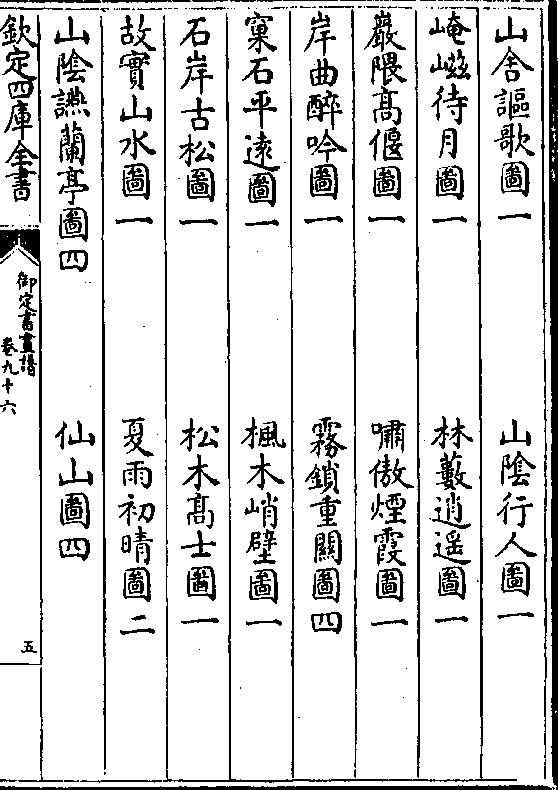 山舍謳歌圖一　山陰行人圖一
崦嵫待月圖一　林藪逍遥圖一
巖隈髙偃圖一　嘯傲煙霞圖一
岸曲醉吟圖一　霧鎖重關圖四
窠石平逺圖一　楓木峭壁圖一
石岸古松圖一　松木髙士圖一
故實山水圖一　夏雨初晴圖二
山陰讌蘭亭圖四　仙山圖四
欽定四庫全書
御定書畫譜
卷九十六
五